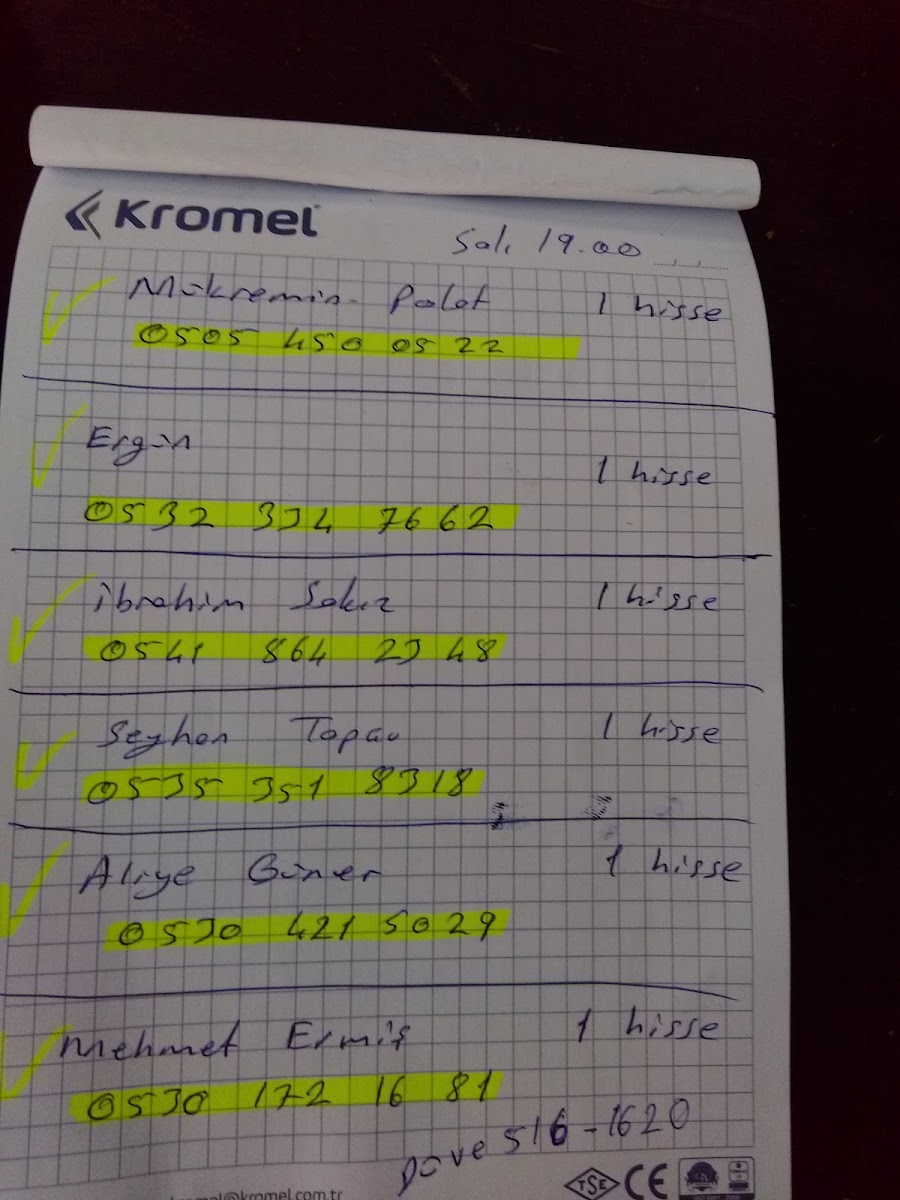 Kromel
Salı 19.00
Mükremin Polat 1 hisse
0505 450 05 22
Ergün
1 hisse
0532 334 7662
İbrahim Sakız 1 hisse
0541 864 23 48
Seyhan 1 hisse
0535 351 8318
Aliye Güner 1 hisse
0530 421 5029
Mehmet Ermiş 1 hisse
0530 172 16 81
Dave 516-1620
kromel@kromel.com.tr
TSE CE